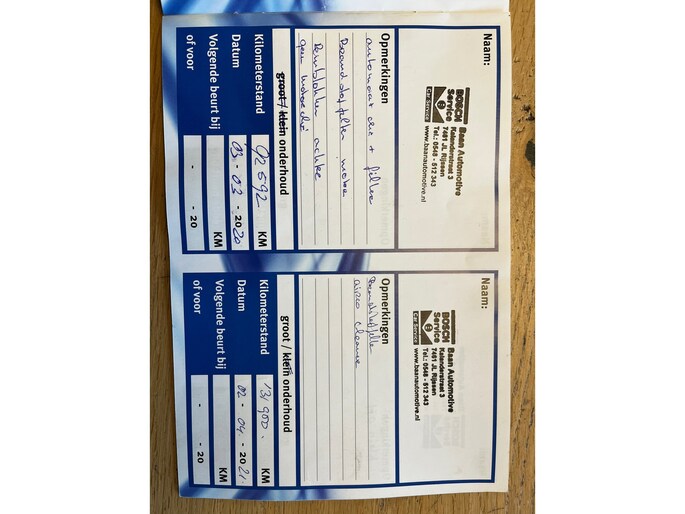 Naam:
BOSCH
Service
Car Service
Baan Automotive
Kalanderstraat 3
7461 JL Rijssen
Tel.: 0548 - 512 343
www.baanautomotive.nl
Opmerkingen
automaat olie + filter
Brandstoffilter motor
Remblokken achter
geen motorolie
groot / klein onderhoud
Kilometerstand 92692 KM
Datum 03 - 03 - 2020
Volgende beurt bij KM
of voor - - 20
Naam:
BOSCH
Service
Car Service
Baan Automotive
Kalanderstraat 3
7461 JL Rijssen
Tel.: 0548 - 512 343
www.baanautomotive.nl
Opmerkingen
Brandstoffilter
airco cleaner
groot / klein onderhoud
Kilometerstand 131 900. KM
Datum 02 - 04 - 2021
Volgende beurt bij KM
of voor - - 20